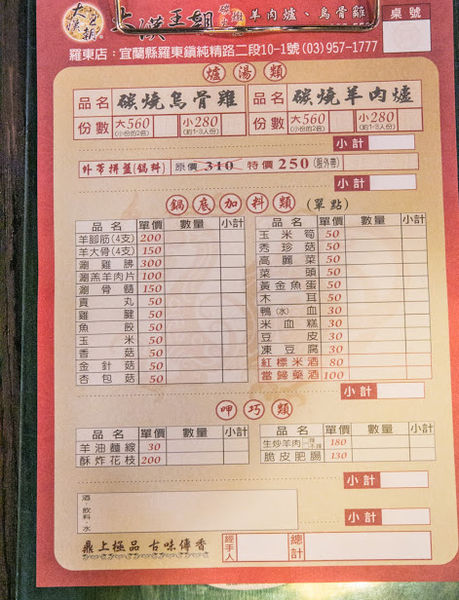 大漢王朝
上漢王朝 碳燒 羊肉爐、烏骨雞 桌號
羅東店：宜蘭縣羅東鎮純精路二段10-1號 (03) 957-1777
爐湯類
品名 碳燒烏骨雞 品名 碳燒羊肉爐
份數 大560 (小份的2倍) 小280 (約1-3人份) 份數 大560 (小份的2倍) 小280 (約1-3人份)
小計
外帶拼盤(鍋料) 原價 310 特價 250 (限外帶)
小計
鍋底加料類 (單點)
品名 單價 數量 小計 品名 單價 數量 小計
羊腳筋(4支) 200 玉米筍 50
羊大骨(4支) 150 秀珍菇 50
涮雞腩 300 高麗菜 50
涮羔羊肉片 100 菜頭 50
涮骨髓 150 黃金魚蛋 50
貢丸 50 木耳 50
雞腱 50 鴨(水)血 30
魚餃 50 米血糕 30
玉米 50 豆皮 30
香菇 50 凍豆腐 30
金針菇 50 紅標米酒 80
杏包菇 50 當歸藥酒 100
小計
呷巧類
品名 單價 數量 小計 品名 單價 數量 小計
羊油麵線 30 生炒羊肉 180
酥炸花枝 200 脆皮肥腸 130
小計
酒、飲料、水
小計
鼎上極品 古味傳香 經手人 總計